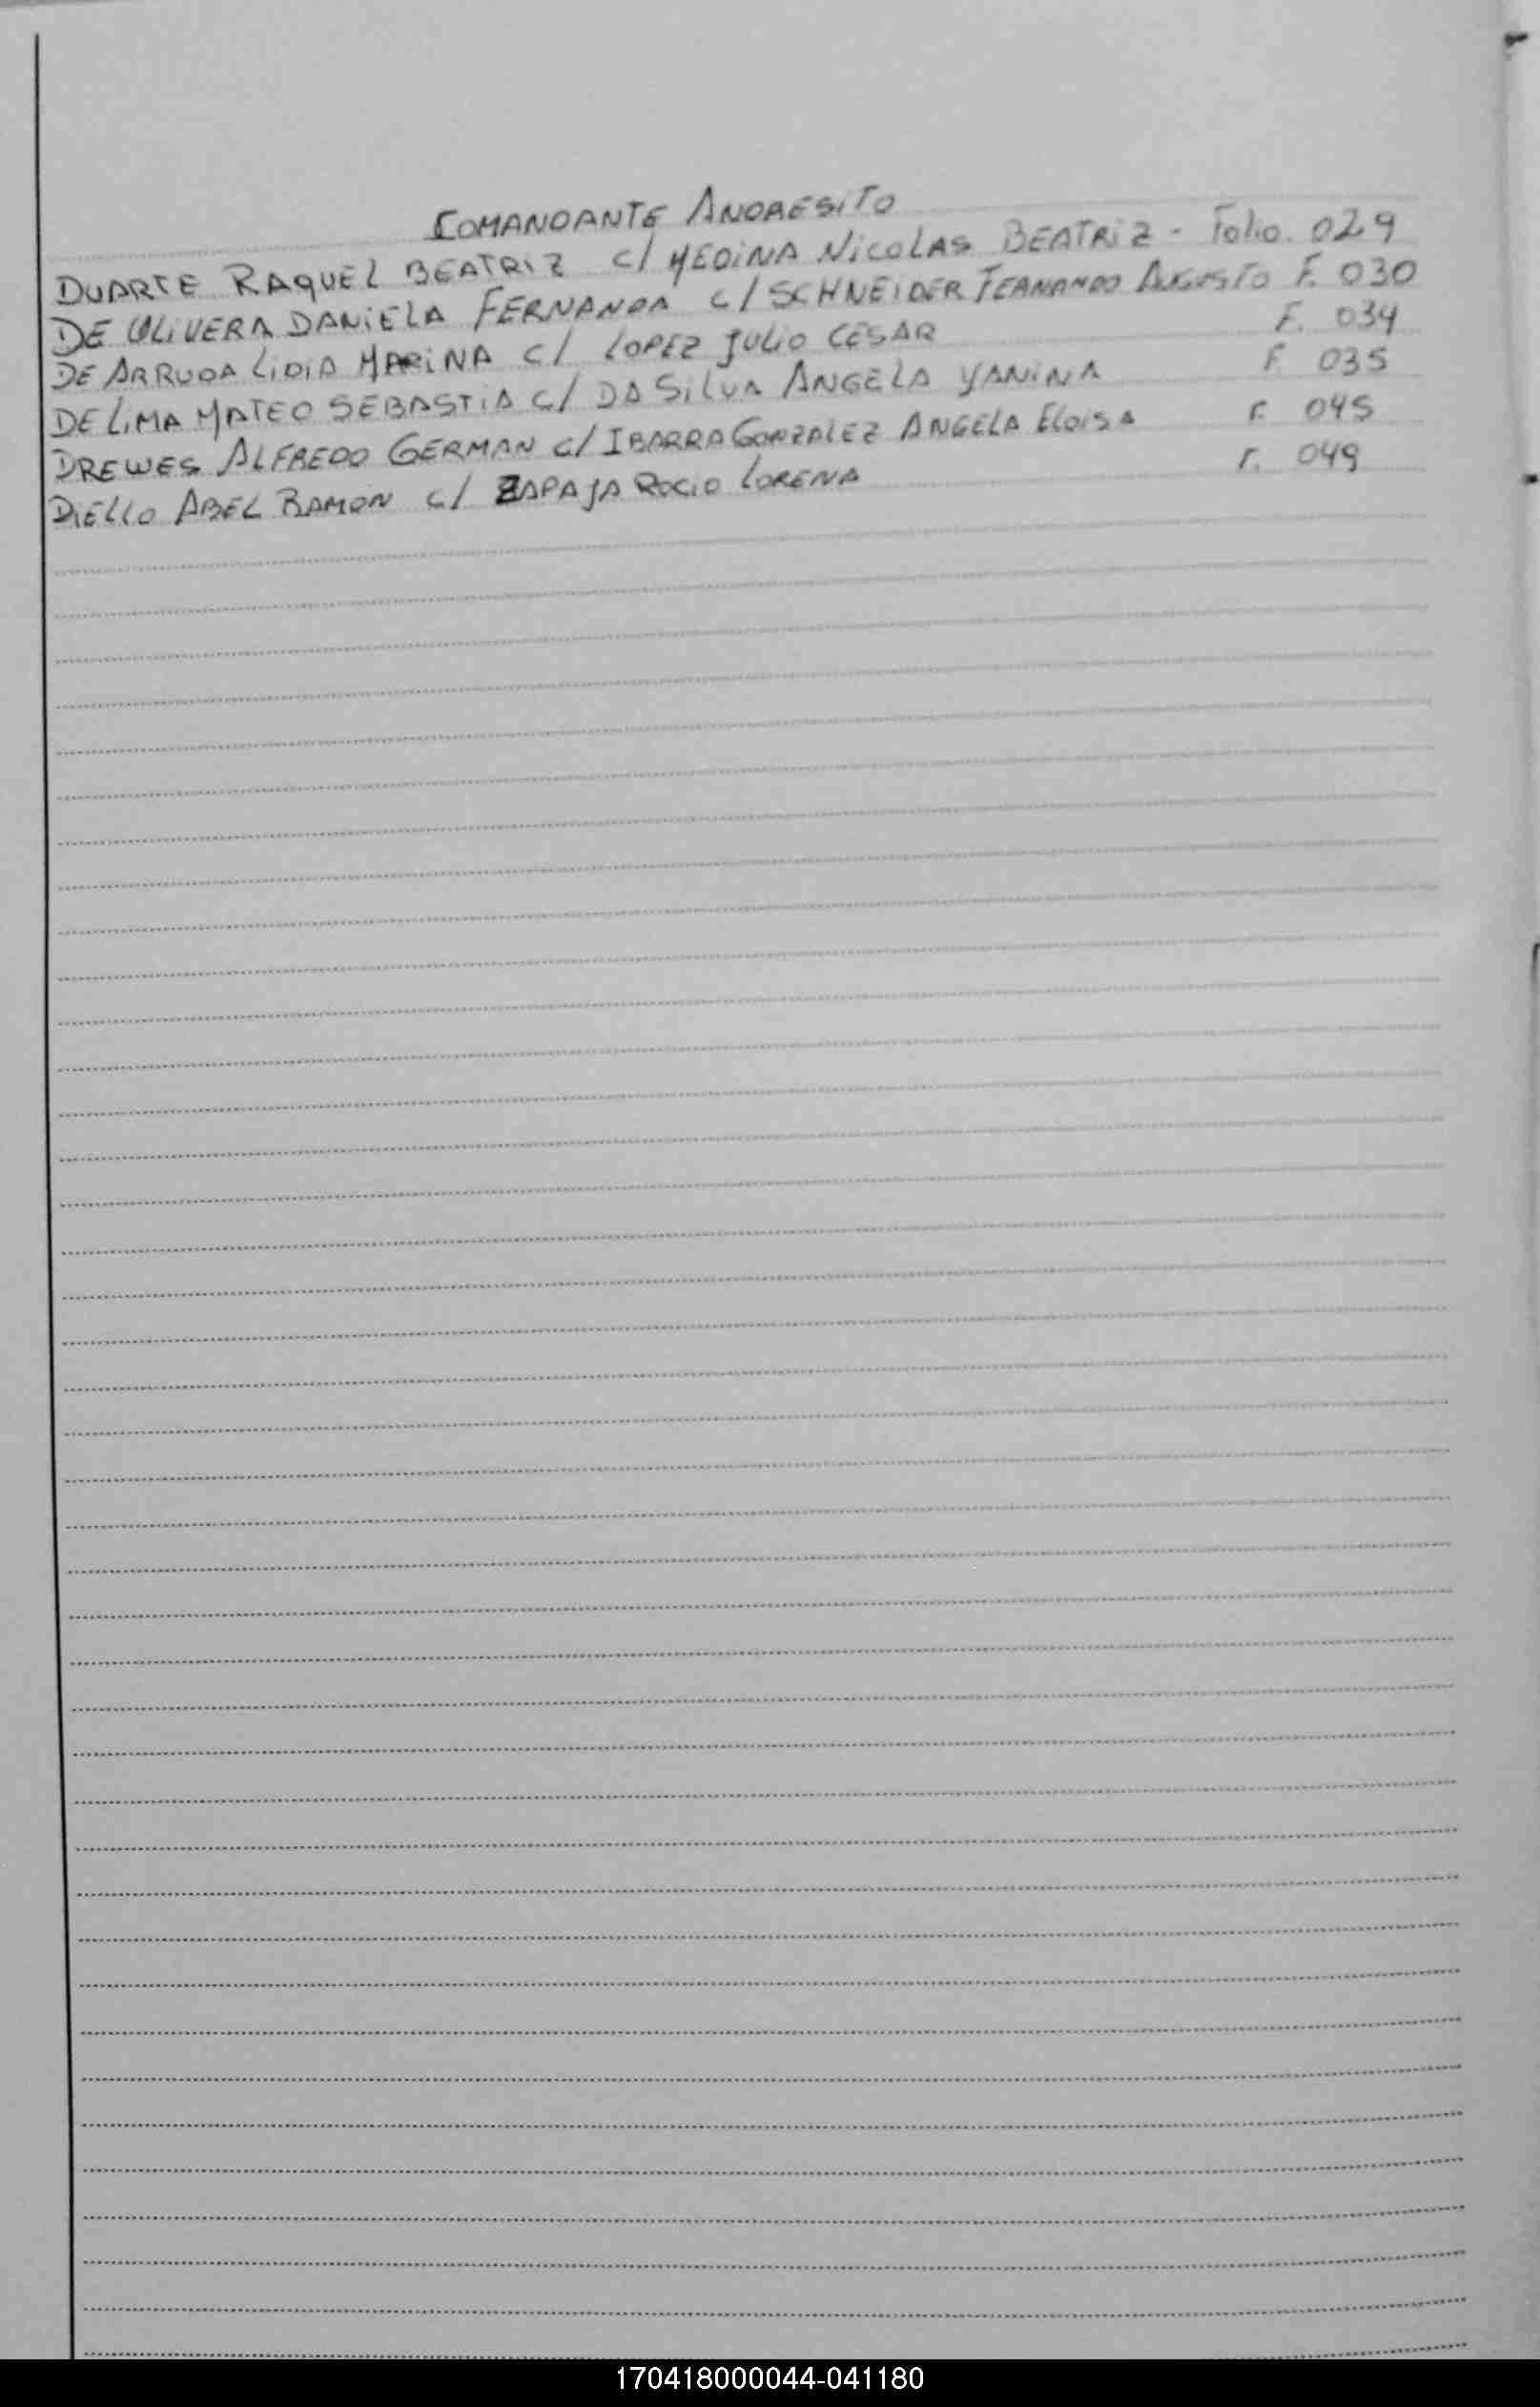 COMANDANTE ANDRESITO
DUARTE RAQUEL BEATRIZ c/ MEDINA NICOLAS BEATRIZ - Folio. 029
DE OLIVERA DANIELA FERNANDA c/ SCHNEIDER FERNANDO AUGUSTO F. 030
DE ARRUDA LIDIA MARINA c/ LOPEZ JULIO CESAR F. 034
DE LIMA MATEO SEBASTIA c/ DA SILVA ANGELA YANINA F. 035
DREWES ALFREDO GERMAN c/ IBARRA GONZALEZ ANGELA ELOISA F. 045
DIELLO ABEL RAMON c/ ZAPAJA ROCIO LORENA F. 049
170418000044-041180